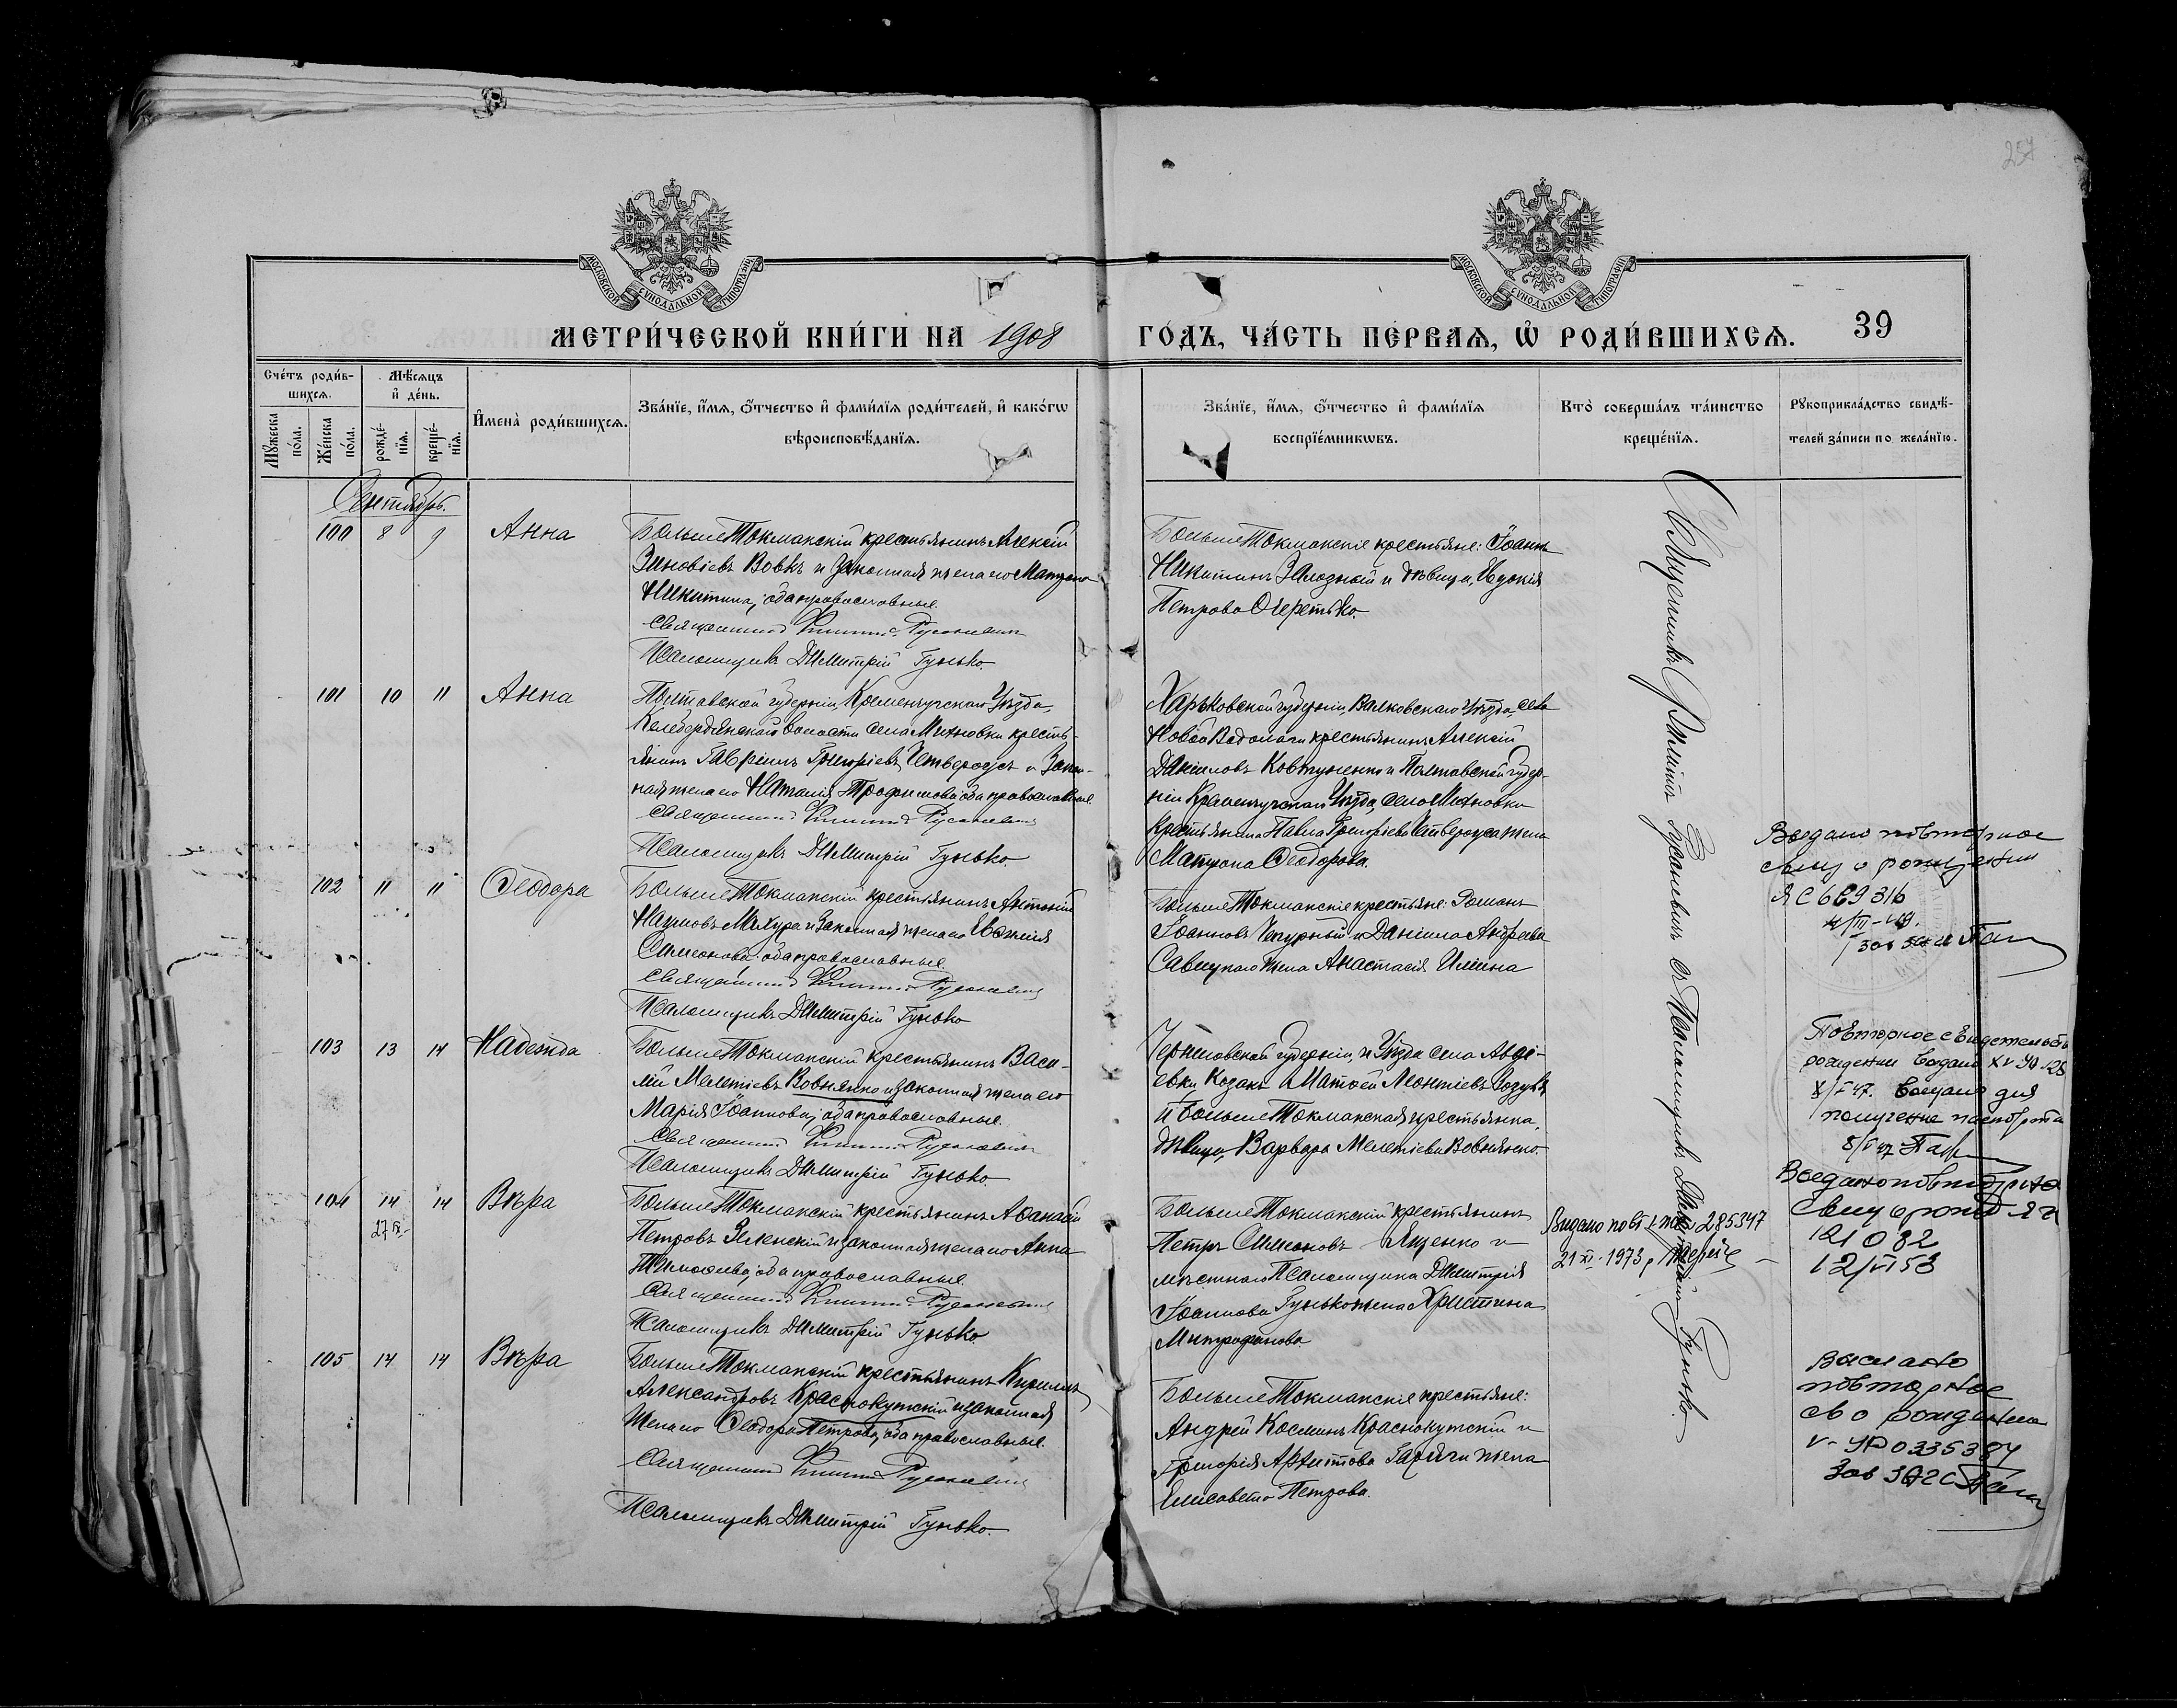 257
МОСКОВСКОЙ СѴНОДАЛЬНОЙ ТИПОГРАФІИ
МОСКОВСКОЙ СѴНОДАЛЬНОЙ ТИПОГРАФІИ
МЕТРИ́ЧЕСКОЙ КНИ́ГИ НА 1908 ГО́ДЪ, ЧА́СТЬ ПЕ́РВАѦ, Ѡ҆ РОДИ́ВШИХСѦ. 39
Сче́тъ роди́в-
шихсѧ.
Мꙋ́жеска
по́ла.
Же́нска
по́ла.
Мѣ́сѧцъ
и҆ де́нь.
рожде́-
нїѧ.
креще́-
нїѧ.
И҆мена̀ роди́вшихсѧ.
Зва́нїе, и҆́мѧ, ѻ҆́тчество и҆ фами́лїѧ роди́телей, и҆ како́гѡ
вѣроисповѣ́данїѧ.
Зва́нїе, и҆́мѧ, ѻ҆́тчество и҆ фами́лїѧ
воспрїе́мникѡвъ.
Кто̀ соверша́лъ та́инство
креще́нїѧ.
Рꙋкоприкла́дство свидѣ́-
телей за́писи по жела́нїю.
Сентябрь.
100 8 9 Анна
БольшеТокмакскій крестьянинъ Алексій
Зиновіевъ Вовкъ и законная жена его Матрона
Никитина, оба православные.
Священникъ Филиппъ
Псаломщикъ Димитрій Гунько.
БольшеТокмакскіе крестьяне: Іоаннъ
Никитинъ Залозный и дѣвица, Евдокія
Петрова Очеретько.
101 10 11 Анна
Полтавской губерніи, Кременчугскаго Уѣзда,
Келебердянской волости села Михновки кресть-
янинъ Гавріилъ Григоріевъ Четвероусъ и закон-
ная жена его Наталія Трофимова, оба православные.
Священникъ Филиппъ
Псаломщикъ Димитрій Гунько
Харьковской губерніи, Валковскаго Уѣзда, села
Новой Водолаги крестьянинъ Алексій
Даніиловъ Ковтуненко и Полтавской губер-
ніи Кременчугскаго Уѣзда, села Михновки
крестьянина Павла Григоріева Четвероуса жена
Матрона Ѳеодорова.
102 11 11 Ѳеодора
БольшеТокмакскій крестьянинъ Антоній
Наумовъ Махура и законная жена его Евѳимія
Симеонова, оба православные.
Священникъ Филиппъ
Псаломщикъ Димитрій Гунько
БольшеТокмакскіе крестьяне: Романъ
Іоанновъ Чепурный и Даніила Андреева
Савицкаго жена Анастасія Илиина
Выдано повторное
свид о рождении
ЯС 669316
103 13 14 Надежда
БольшеТокмакскій крестьянинъ Васи-
лій Мелетіевъ Вовнянко и законная жена его
Марія Іоаннова, оба православные.
Священникъ Филиппъ
Псаломщикъ Димитрій Гунько.
Черниговской губерніи, и Уѣзда села Авдѣ-
евки, Козакъ Матѳей Леонтіевъ Зозуля
и БольшеТокмакская крестьянка,
дѣвица, Варвара Мелетіева Вовнянко.
Повторное свидетельство
рождении выдано
выдано для
получение паспорта
104 14 14 Вѣра
БольшеТокмакскій крестьянинъ Аѳанасій
Петровъ Зеленскій и законная жена его Анна
Тимоѳеева, оба православные.
Священникъ Филиппъ
Псаломщикъ Димитрій Гунько
БольшеТокмакскій крестьянинъ
Петръ Симеоновъ Яценко и
мѣстнаго Псаломщика Димитрія
Іоаннова Гунько жена Христина
Митрофанова
Видано повт 285347
21 XI 1973 р
Выдано повторно
свид о рожд ЯЧ
121032
12/VI 53
105 14 14 Вѣра
БольшеТокмакскій крестьянинъ Кириллъ
Александровъ Краснокутскій и законная
жена его Ѳеодора Петрова, оба православные.
Священникъ Филиппъ
Псаломщикъ Димитрій Гунько.
БольшеТокмакскіе крестьяне:
Андрей Косминъ Краснокутскій и
Григорія Архиппова Гаряги жена
Елисавета Петрова.
Выслано
повторное
св о рождении
Священникъ Филиппъ съ Псаломщикомъ Димитріемъ Гунько.